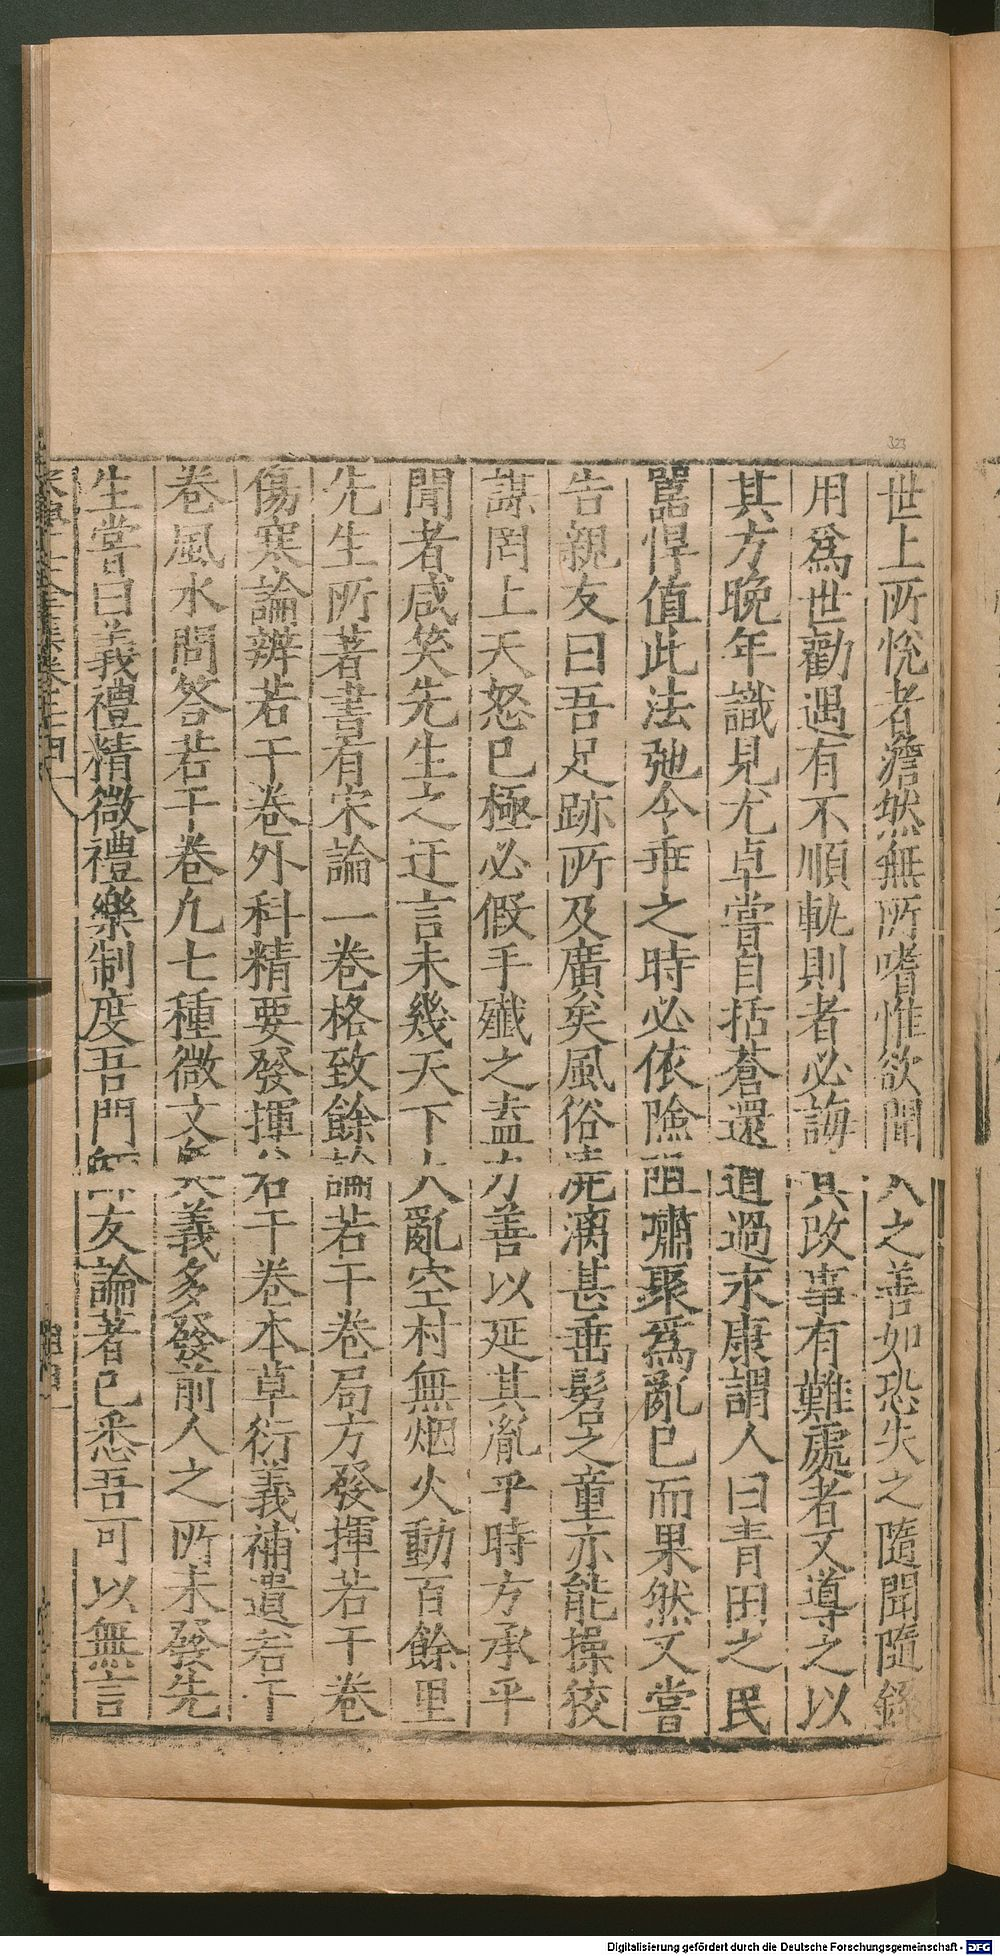 世上所悅者澹然無所嗜惟欲聞人之善如恐失之隨聞隨錄
用爲世勸遇有不順軌則者必誨其改事有難處者又導之以
其方晚年識見尤卓嘗自括蒼還道過永康謂人曰青田之民
嚚悍值此法弛令乖之時必依險阻嘯聚爲亂已而果然又嘗
告親友曰吾足跡所及廣矣風俗澆漓甚垂髫之童亦能操狡
謀罔上天怒已極必假手殲之盍力善以延其胤乎時方承平
聞者咸笑先生之迂言未幾天下大亂空村無烟火動百餘里
先生所著書有宋論一卷格致餘論若干卷局方發揮若干卷
傷寒論辨若干卷外科精要發揮若干卷本草衍義補遺若干
卷風水問答若干卷凡七種微文奧義多發前人之所未發先
生嘗曰義禮精微禮樂制度吾門師友論著已悉吾可以無言
323
Digitalisierung gefördert durch die Deutsche Forschungsgemeinschaft - DFG